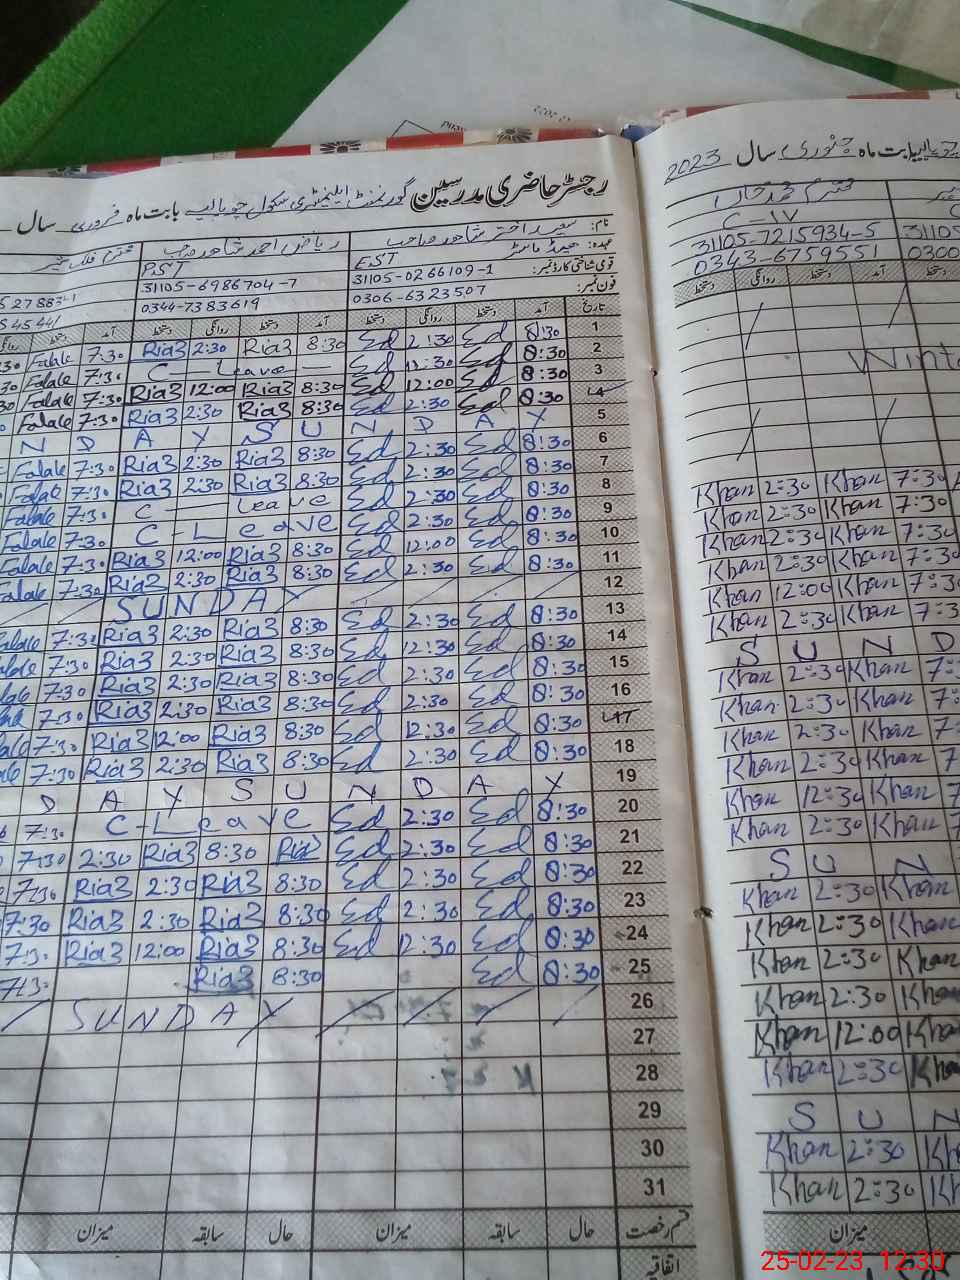 رجسٹر حاضری مدرسین گورنمنٹ ایلیمنٹری سکول بابت ماہ فروری سال
نام: سعید اختر شاہد صاحب ریاض احمد شاہد صاحب
عہدہ: ہیڈ ماسٹر EST PST
قومی شناختی کارڈ نمبر: 31105-0266109-1 31105-6986704-7
فون نمبر: 0306-6323507 0344-7383619
تاریخ آمد دستخط روانگی دستخط آمد دستخط روانگی دستخط آمد دستخط
1 8:30 Ed 2:30 Ed 8:30 Ria3 2:30 Ria3 7:30 Falale
2 8:30 Ed 12:30 Ed C - Leave 7:30 Falale
3 8:30 Ed 12:00 Ed 8:30 Ria3 12:00 Ria3 7:30 Falale
4 8:30 Ed 2:30 Ed 8:30 Ria3 2:30 Ria3 7:30 Falale
5 N D A Y S U N D A Y
6 8:30 Ed 2:30 Ed 8:30 Ria3 2:30 Ria3 7:30 Falale
7 8:30 Ed 2:30 Ed 8:30 Ria3 2:30 Ria3 7:30 Falale
8 8:30 Ed 2:30 Ed C - Leave 7:30 Falale
9 8:30 Ed 2:30 Ed C - Leave 7:30 Falale
10 8:30 Ed 12:00 Ed 8:30 Ria3 12:00 Ria3 7:30 Falale
11 8:30 Ed 2:30 Ed 8:30 Ria3 2:30 Ria3 7:30 Falale
12 SUNDAY
13 8:30 Ed 2:30 Ed 8:30 Ria3 2:30 Ria3 7:30
14 8:30 Ed 12:30 Ed 8:30 Ria3 2:30 Ria3 7:30
15 8:30 Ed 2:30 Ed 8:30 Ria3 2:30 Ria3 7:30
16 8:30 Ed 2:30 Ed 8:30 Ria3 2:30 Ria3 7:30
17 8:30 Ed 12:30 Ed 8:30 Ria3 12:00 Ria3 7:30
18 8:30 Ed 2:30 Ed 8:30 Ria3 2:30 Ria3 7:30
19 D A Y S U N D A Y
20 8:30 Ed 2:30 Ed C-Leave 7:30
21 8:30 Ed 2:30 Ed Ria3 8:30 Ria3 2:30 7:30
22 8:30 Ed 2:30 Ed 8:30 Ria3 2:30 Ria3 7:30
23 8:30 Ed 2:30 Ed 8:30 Ria3 2:30 Ria3 7:30
24 8:30 Ed 12:30 Ed 8:30 Ria3 12:00 Ria3 7:30
25 8:30 Ed 8:30 Ria3 7:30
26 SUNDAY
27
28
29
30
31
قسم رخصت حال سابقہ میزان حال سابقہ میزان
اتفاقیہ
بابت ماہ جنوری سال 2023
C-IV
31105-7215934-5 31105
0343-6759551 0300
آمد دستخط روانگی دستخط
Wint
Khan 2:30 Khan 7:30
Khan 2:30 Khan 7:30
Khan 2:30 Khan 7:30
Khan 2:30 Khan 7:30
Khan 12:00 Khan 7:30
Khan 2:30 Khan 7:3
S U N D
Khan 2:30 Khan 7:
Khan 2:30 Khan 7:
Khan 2:30 Khan 7:
Khan 2:30 Khan 7
Khan 12:30 Khan 7
Khan 2:30 Khan 7
S U N
Khan 2:30 Khan
Khan 2:30 Khan
Khan 2:30 Khan
Khan 2:30 Khan
Khan 12:00 Khan
Khan 2:30 Khan
S U N
Khan 2:30 Kh
Khan 2:30 Kh
میزان
25-02-23 12:30